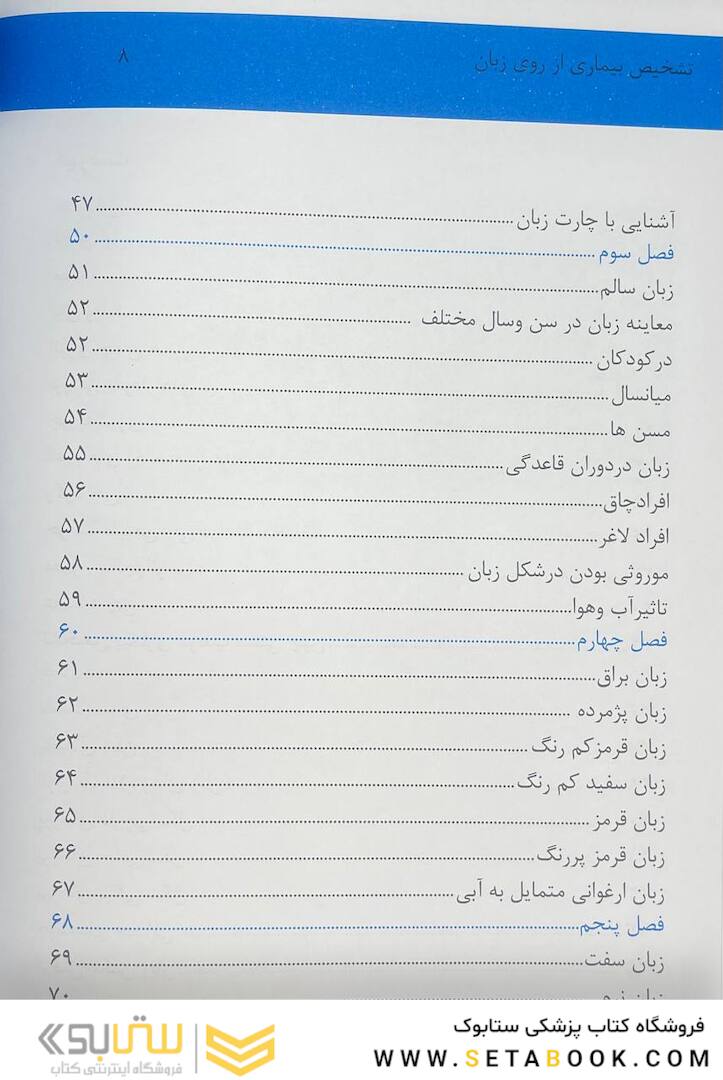 تشخیص بیماری از روی زبان ۸
آشنایی با چارت زبان ۴۷
فصل سوم ۵۰
زبان سالم ۵۱
معاینه زبان در سن وسال مختلف ۵۲
درکودکان ۵۲
میانسال ۵۳
مسن ها ۵۴
زبان دردوران قاعدگی ۵۵
افرادچاق ۵۶
افراد لاغر ۵۷
موروثی بودن درشکل زبان ۵۸
تاثیرآب وهوا ۵۹
فصل چهارم ۶۰
زبان براق ۶۱
زبان پژمرده ۶۲
زبان قرمزکم رنگ ۶۳
زبان سفید کم رنگ ۶۴
زبان قرمز ۶۵
زبان قرمز پررنگ ۶۶
زبان ارغوانی متمایل به آبی ۶۷
فصل پنجم ۶۸
زبان سفت ۶۹
زبان نرم ۷۰
فروشگاه کتاب پزشکی ستابوک
WWW.SETABOOK.COM
ستابوک
فروشگاه اینترنتی کتاب